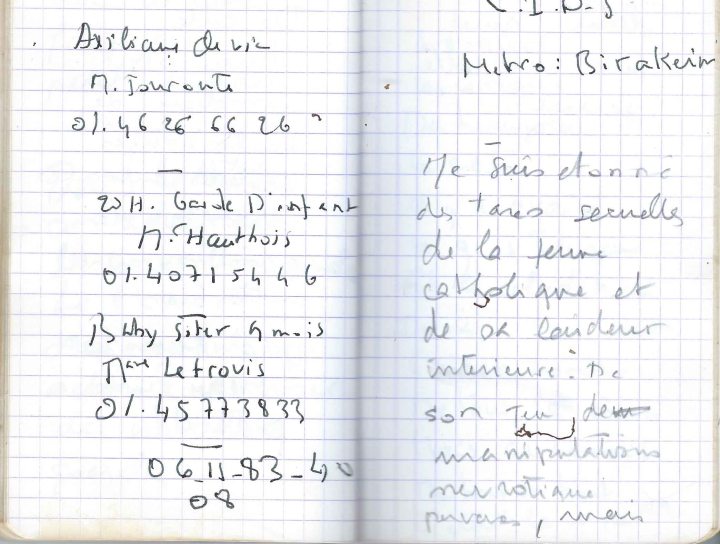 Axiliaire de vie
M. Jouronte
01.46 26 66 26
20 H. Garde D'enfant
M. Hauthois
01.40715446
Baby siter 9 mois
Mme Letrovis
01.45773833
06_11_83_40
08
C.I.D.J
Metro: Birakeim
Me suis etonné
des tares sexuelles
de la femme
catholique et
de sa laideur
interieure. De
son Jeu de
manipulations
nevrotique
perverses, mais